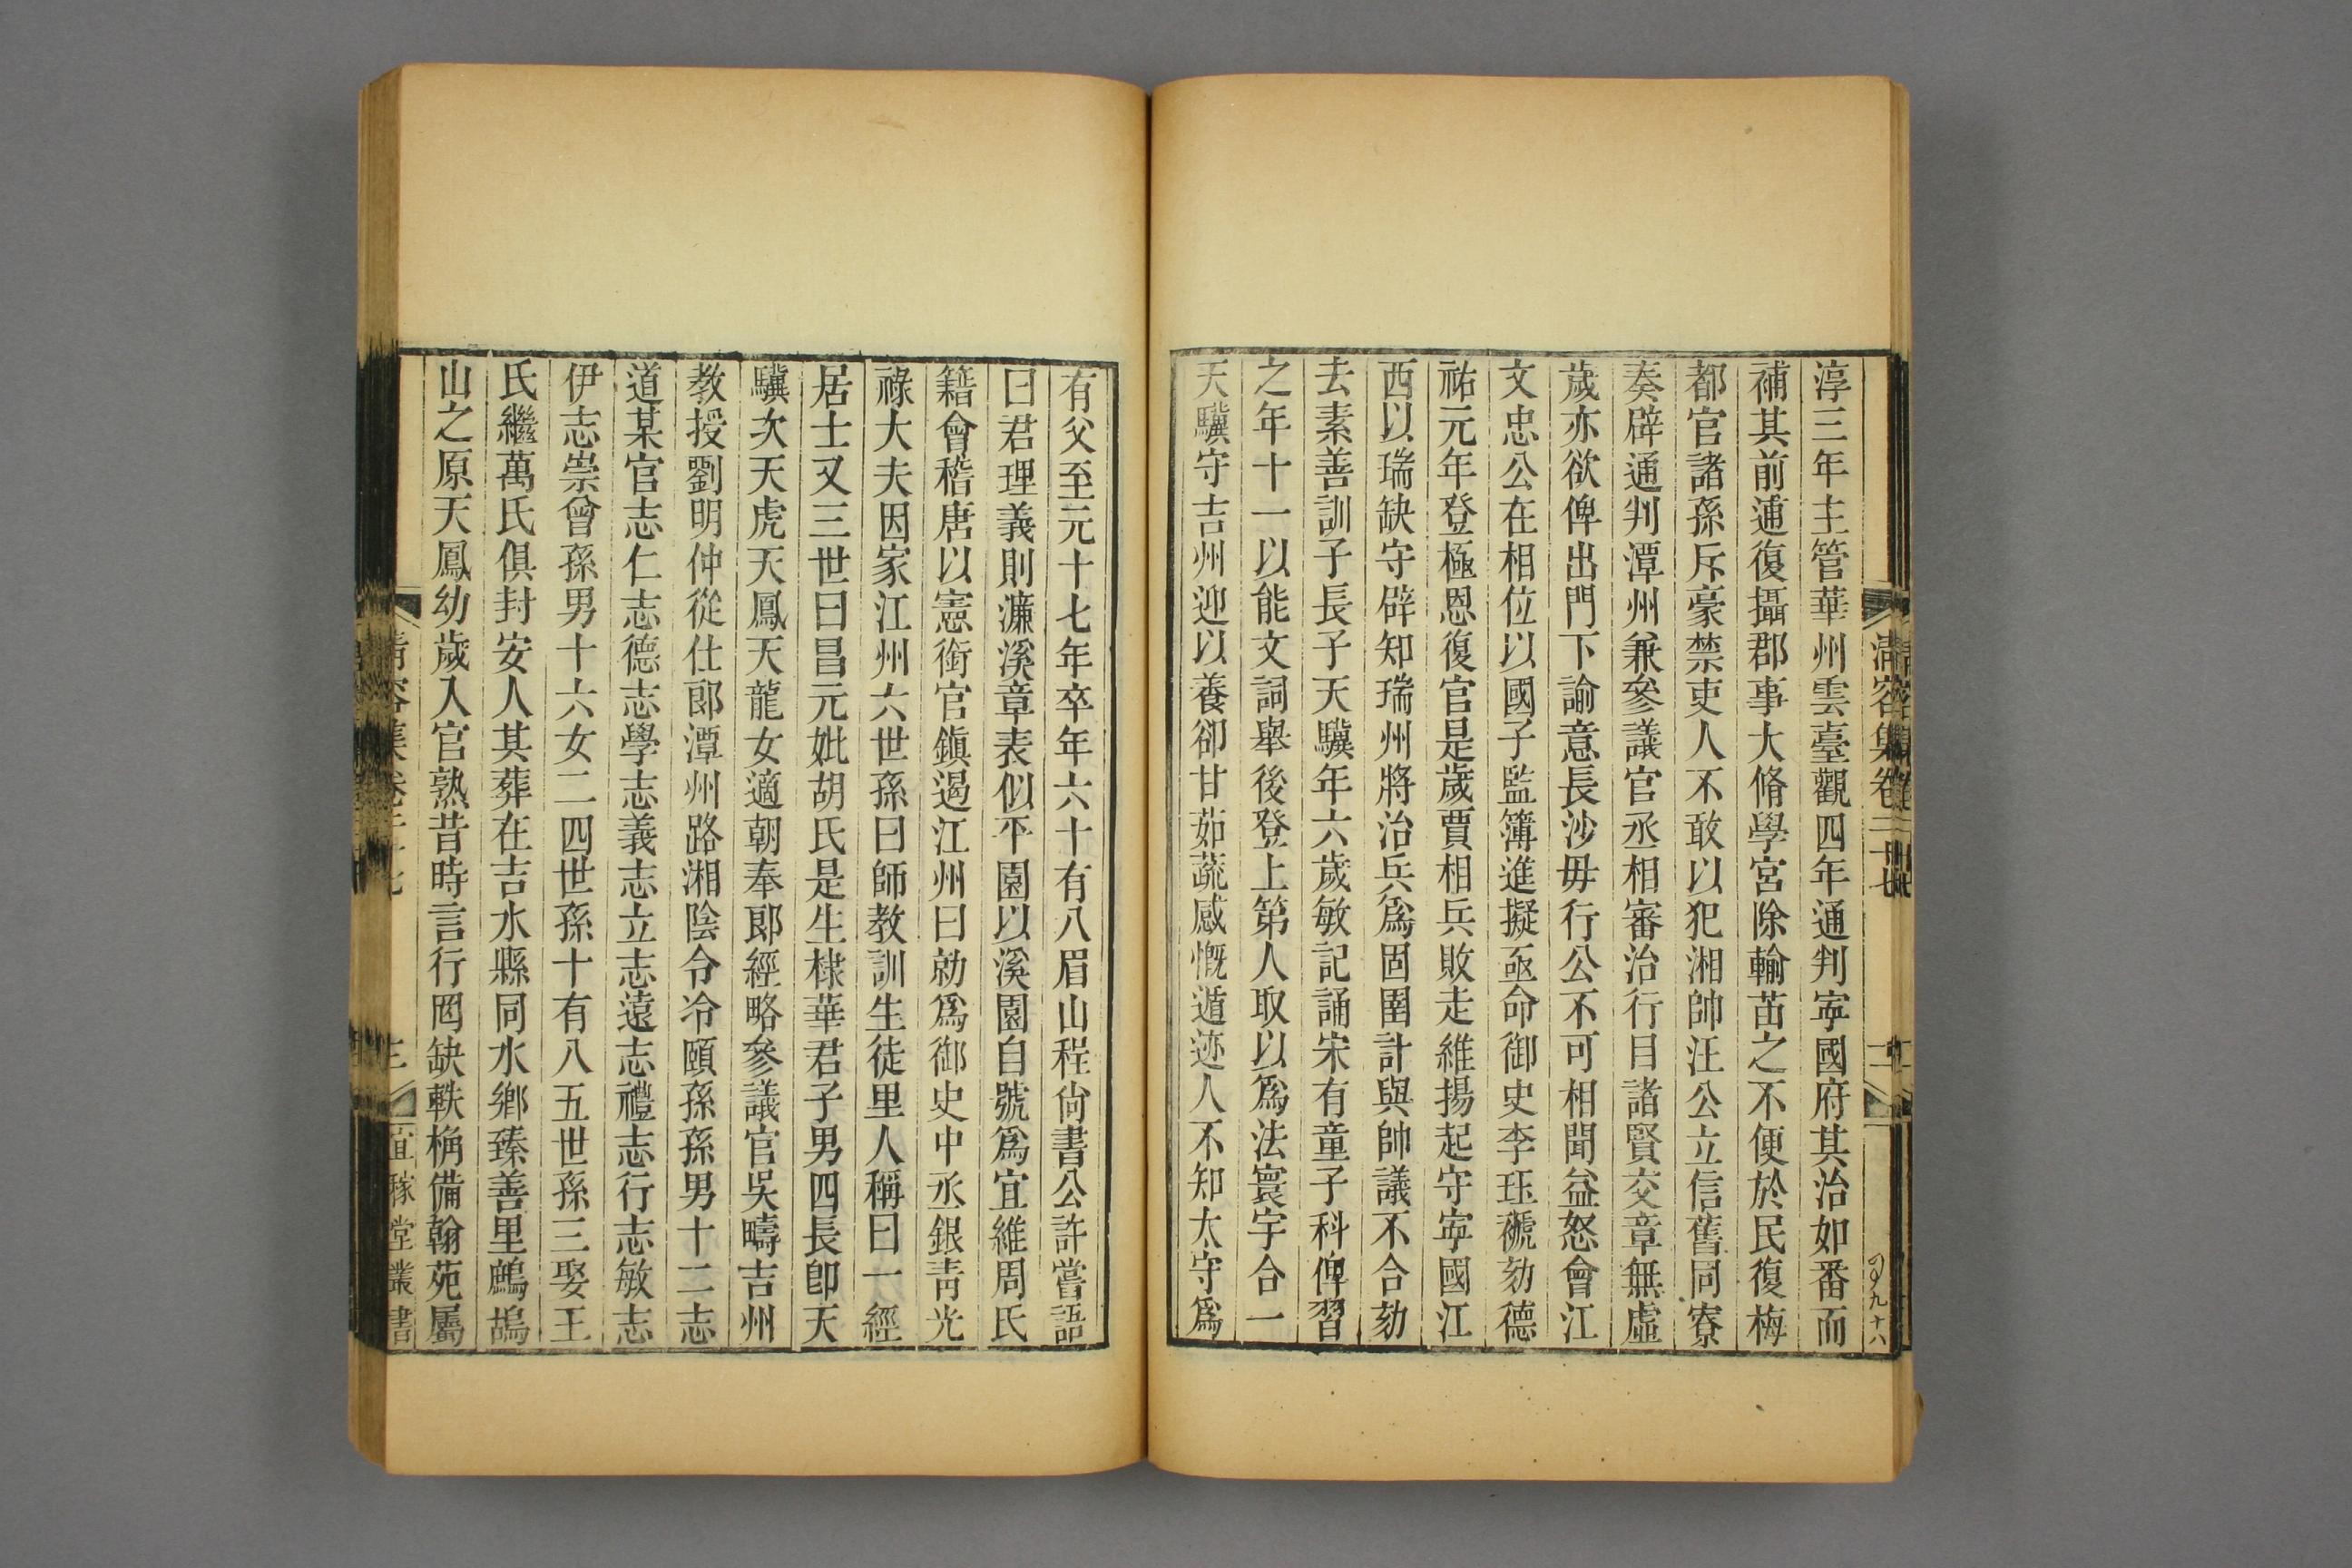 清容集卷二十七
二
九十八
淳三年主管華州雲臺觀四年通判寧國府其治如番而
補其前逋復攝郡事大脩學宮除輸苗之不便於民復梅
都官諸孫斥豪禁吏人不敢以犯湘帥汪公立信舊同寮
奏辟通判潭州兼參議官丞相審治行目諸賢交章無虛
歲亦欲俾出門下諭意長沙毋行公不可相聞益怒會江
文忠公在相位以國子監簿進擬亟命御史李珏禠劾德
祐元年登極恩復官是歲賈相兵敗走維揚起守寧國江
西以瑞缺守辟知瑞州將治兵爲固圉計與帥議不合劾
去素善訓子長子天驥年六歲敏記誦宋有童子科俾習
之年十一以能文詞舉後登上第人取以爲法寰宇合一
天驥守吉州迎以養卻甘茹蔬感慨遁迹人不知太守爲
有父至元十七年卒年六十有八眉山程尙書公許嘗語
曰君理義則濂溪章表似平園以溪園自號爲宜維周氏
籍會稽唐以憲銜官鎭遏江州曰勍爲御史中丞銀靑光
祿大夫因家江州六世孫曰師教訓生徒里人稱曰一經
居士又三世曰昌元妣胡氏是生棣華君子男四長卽天
驥次天虎天鳳天龍女適朝奉郞經略參議官吳疇吉州
教授劉明仲從仕郞潭州路湘陰令冷頤孫孫男十二志
道某官志仁志德志學志義志立志遠志禮志行志敏志
伊志崇曾孫男十六女二四世孫十有八五世孫三娶王
氏繼萬氏俱封安人其葬在吉水縣同水鄕臻善里鷓鴣
山之原天鳳幼歲入官熟昔時言行罔缺軼桷備翰苑屬
清容集卷二十七
三
宜稼堂叢書